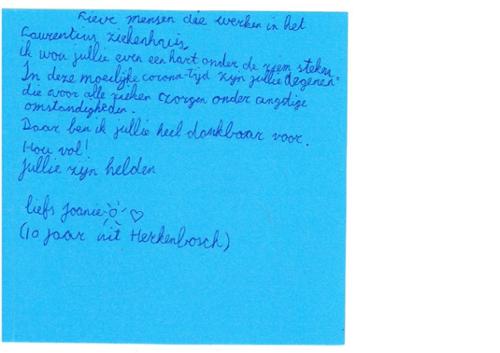 Lieve mensen die werken in het
Laurentius ziekenhuis,
ik wou jullie even een hart onder de riem steken
In deze moeilijke corona-tijd zijn jullie degenen
die voor alle zieken zorgen onder angstige
omstandigheden.
Daar ben ik jullie heel dankbaar voor.
Hou vol!
Jullie zijn helden
liefs Joanie
(10 jaar uit Herkenbosch)